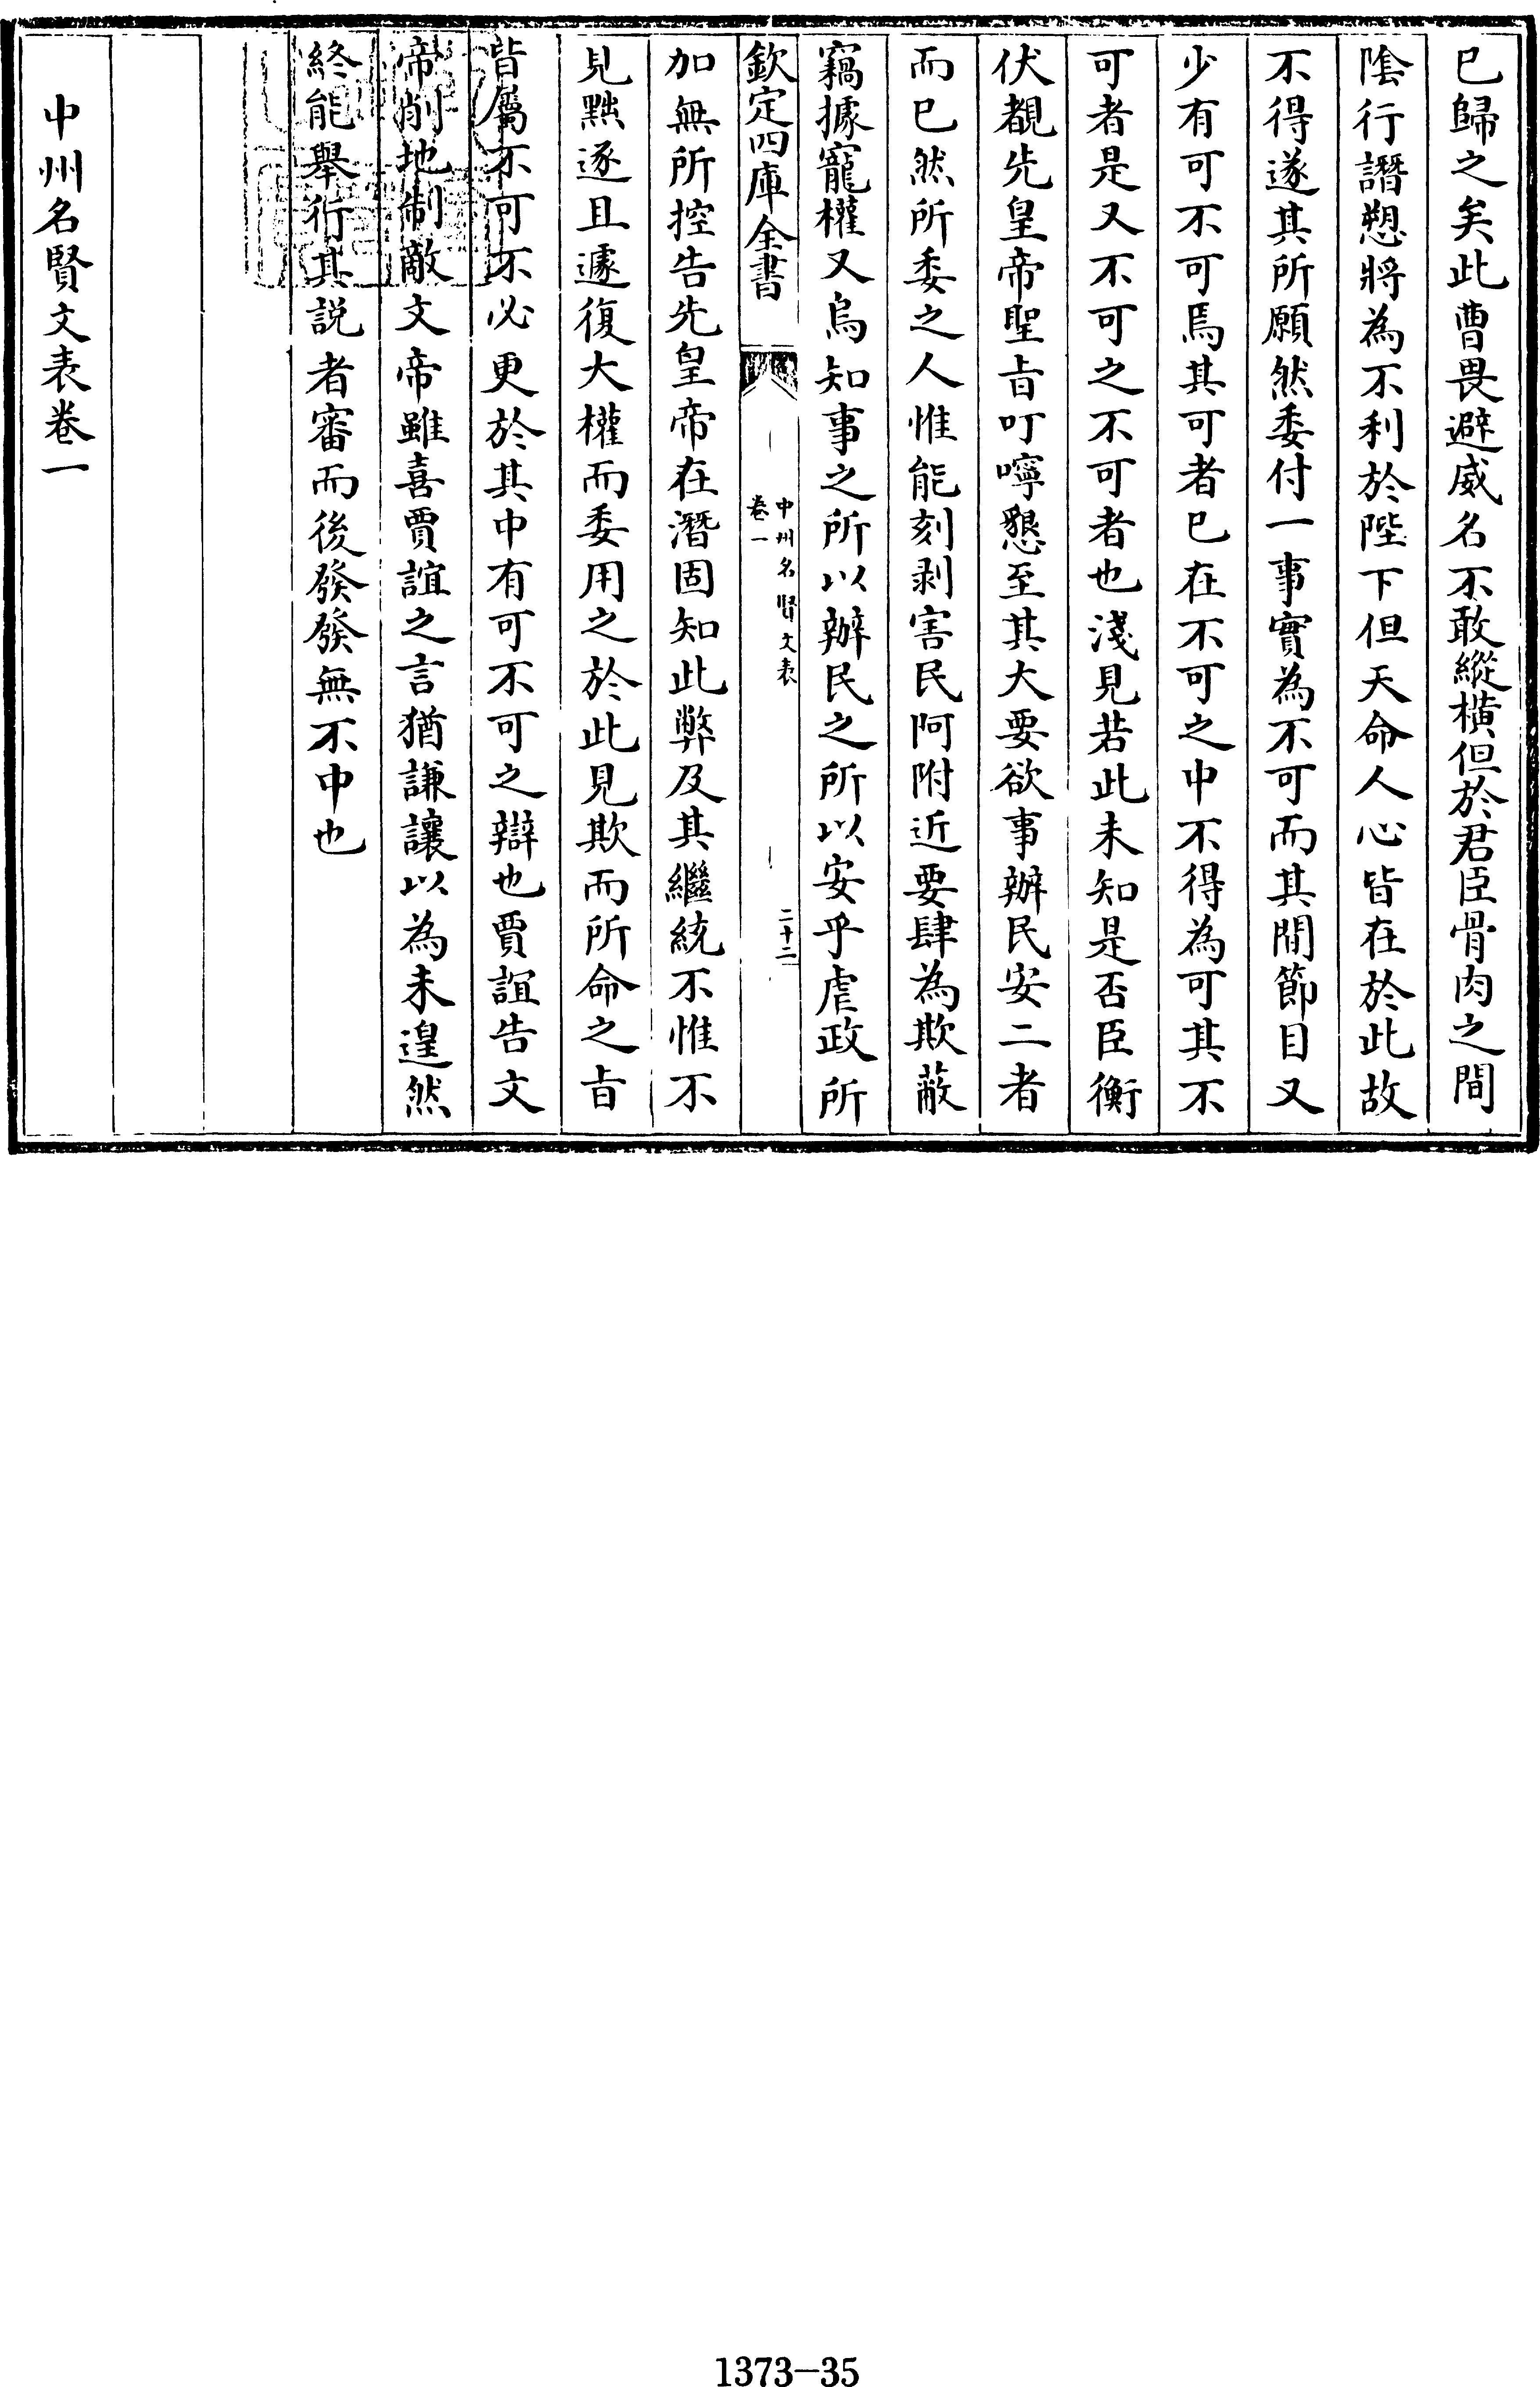 已歸之矣此曹畏避威名不敢縱横但於君臣骨肉之間
隂行譖愬將為不利於陛下但天命人心皆在於此故
不得遂其所願然委付一事實為不可而其間節目又
少有可不可焉其可者已在不可之中不得為可其不
可者是又不可之不可者也淺見若此未知是否臣衡
伏覩先皇帝聖㫖叮嚀懇至其大要欲事辦民安二者
而已然所委之人惟能刻剥害民阿附近要肆為欺蔽
竊據寵權又烏知事之所以辦民之所以安乎虐政所
欽定四庫全書
中州名賢文表
卷一
二十二
加無所控告先皇帝在潛固知此弊及其繼統不惟不
見黜逐且遽復大權而委用之於此見欺而所命之㫖
皆屬不可不必更於其中有可不可之辯也賈誼告文
帝削地制敵文帝雖喜賈誼之言猶謙讓以為未遑然
終能舉行其説者審而後發發無不中也
中州名賢文表卷一
1373-35